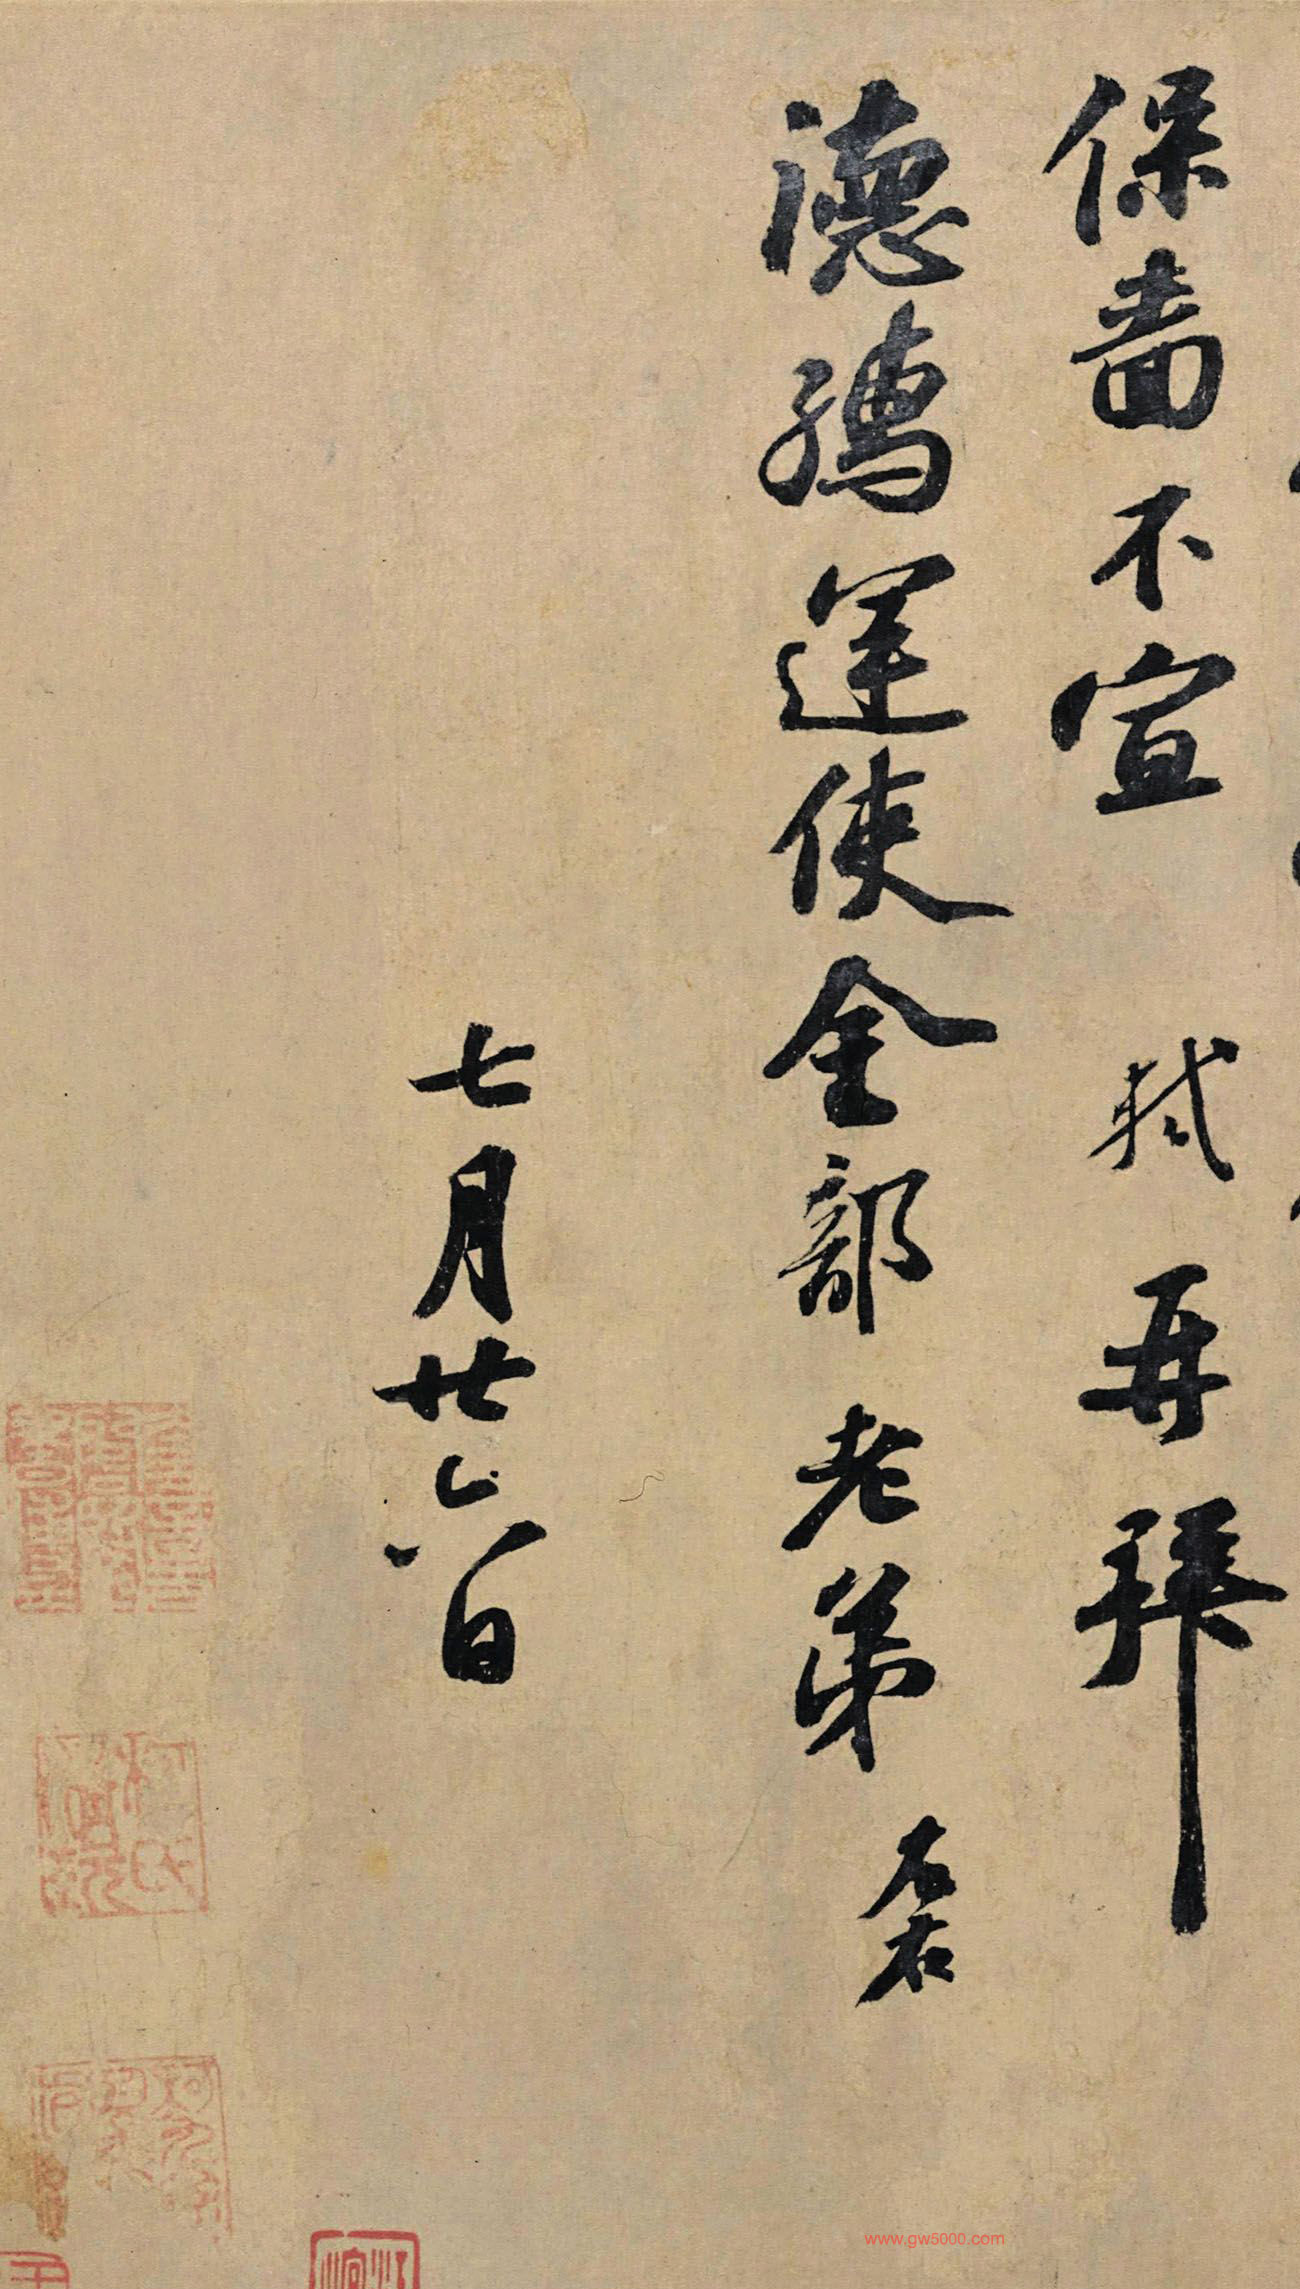 保嗇不宣 軾再拜
德孺運使金部老弟 左右
七月廿六日
www.gw5000.com